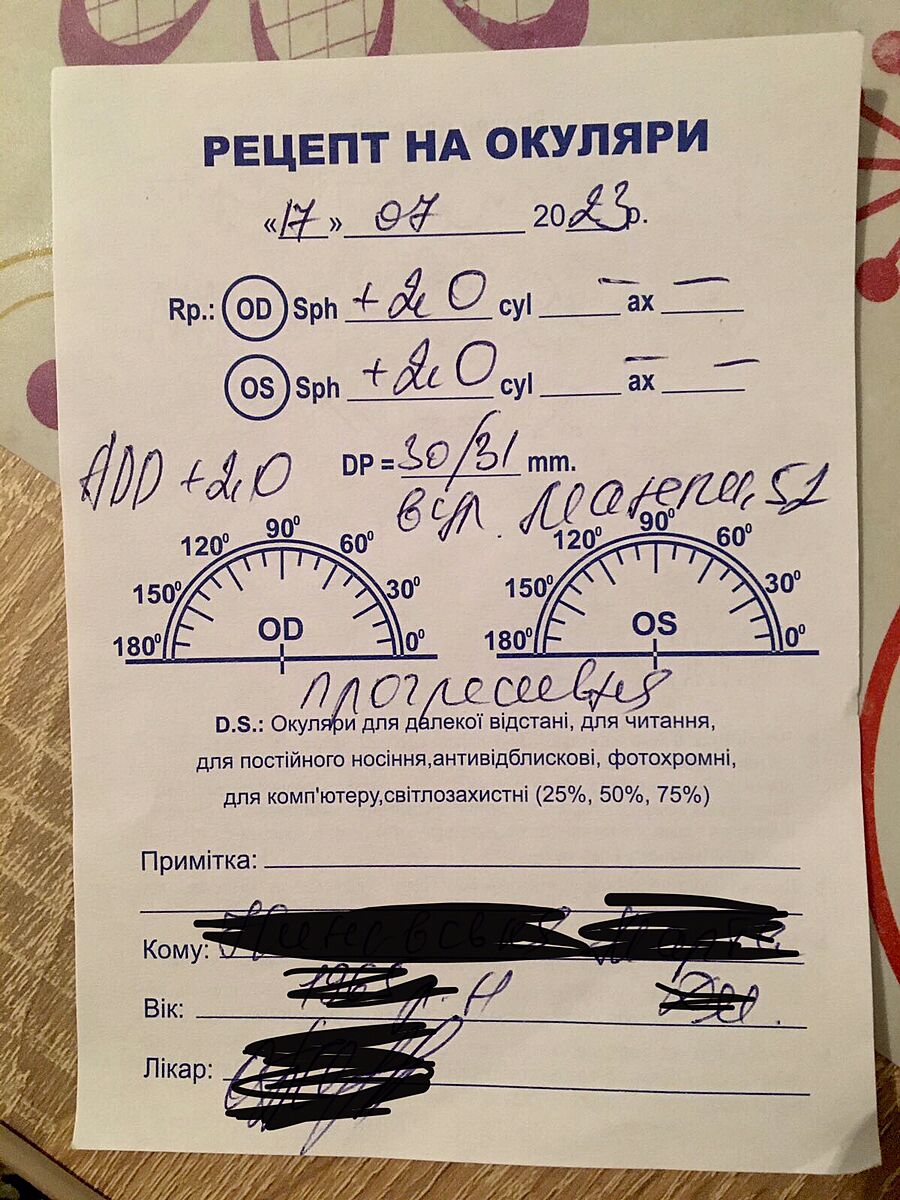 РЕЦЕПТ НА ОКУЛЯРИ
«17» 07 2023р.
Rp.: OD Sph +2,0 cyl — ax —
OS Sph +2,0 cyl — ax —
ADD +2,0 DP = 30/31 mm.
вул. 52
180⁰ 150⁰ 120⁰ 90⁰ 60⁰ 30⁰ 0⁰ OD
180⁰ 150⁰ 120⁰ 90⁰ 60⁰ 30⁰ 0⁰ OS
D.S.: Окуляри для далекої відстані, для читання,
для постійного носіння,антивідблискові, фотохромні,
для комп'ютеру,світлозахистні (25%, 50%, 75%)
Примітка:
Кому:
Вік: р. н
Лікар: